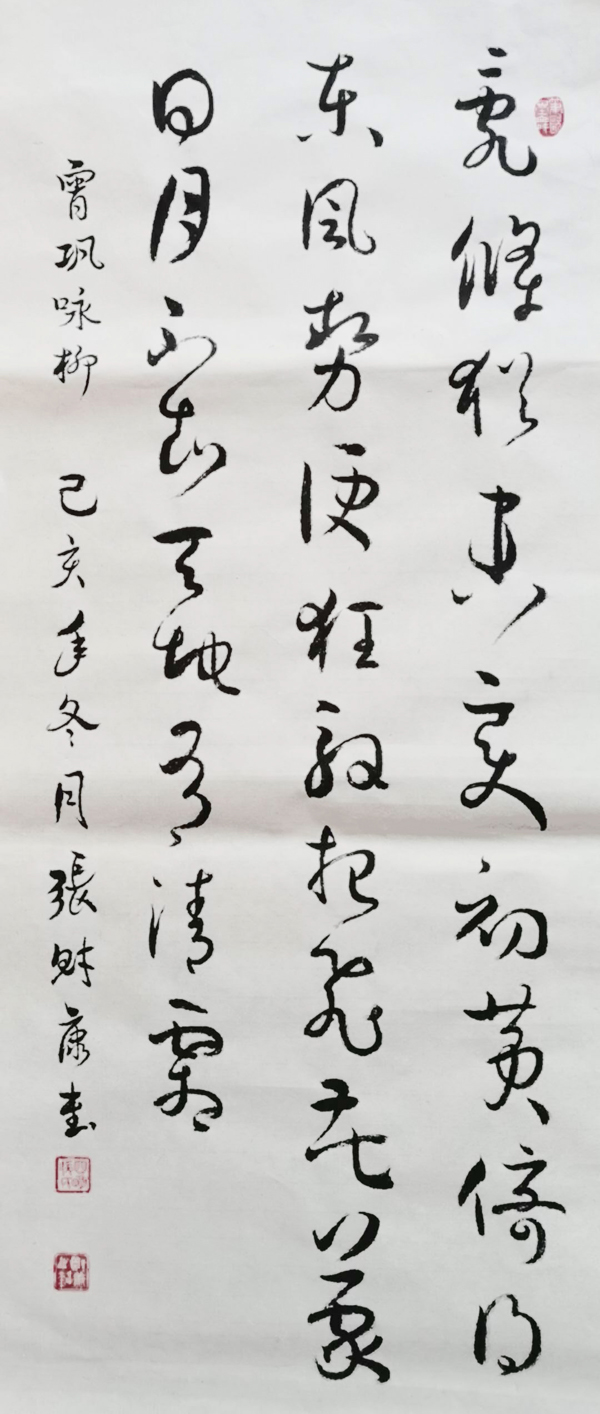 亂條猶未變初黄倚得
東風勢便狂解把飛花蒙
日月不知天地有清霜
曾巩咏柳 己亥年冬月張財康書